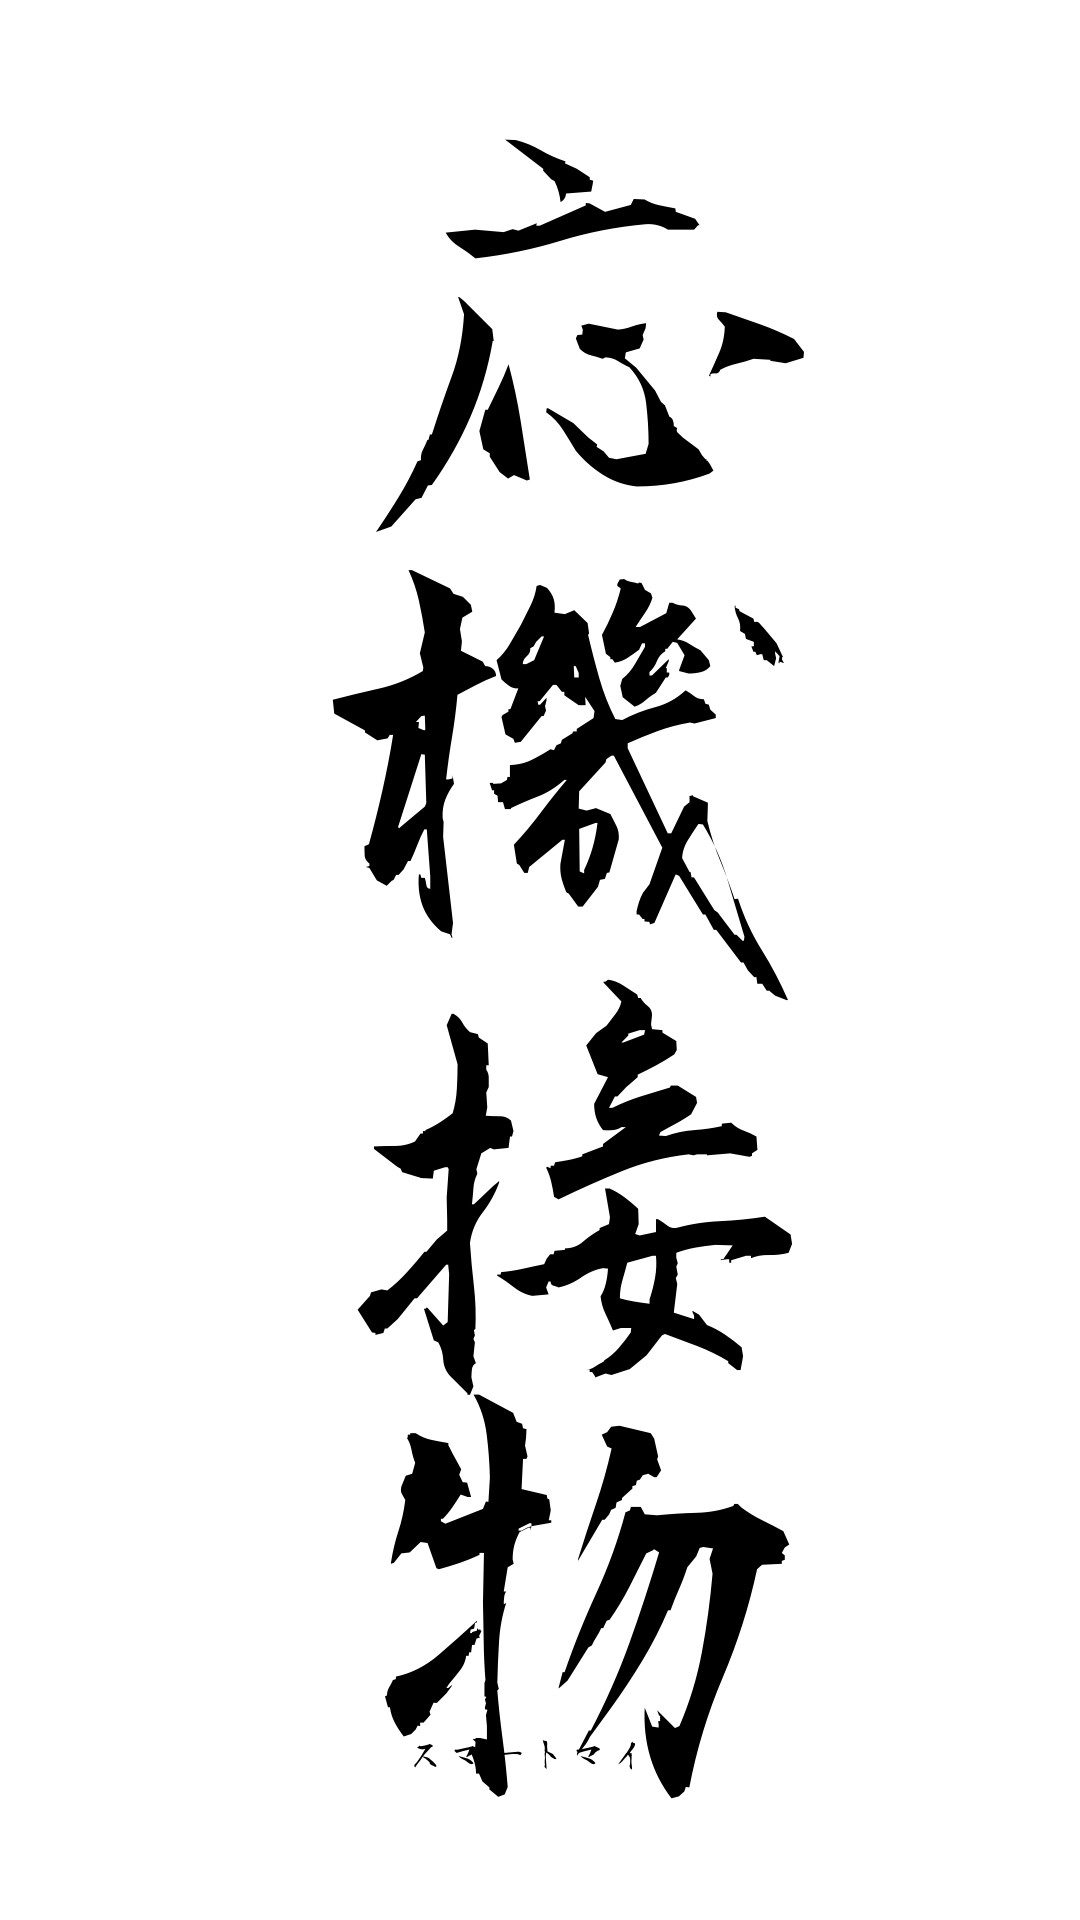 応機接物
スマートマイ